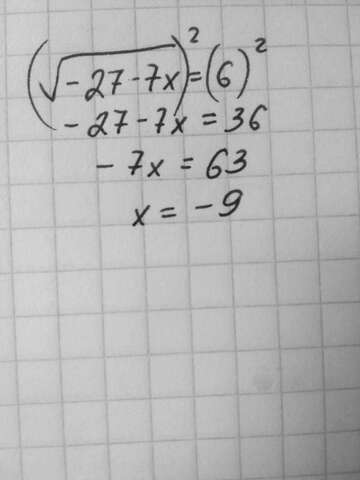 (√-27-7x)²=(6)²
-27-7x=36
-7x=63
x=-9